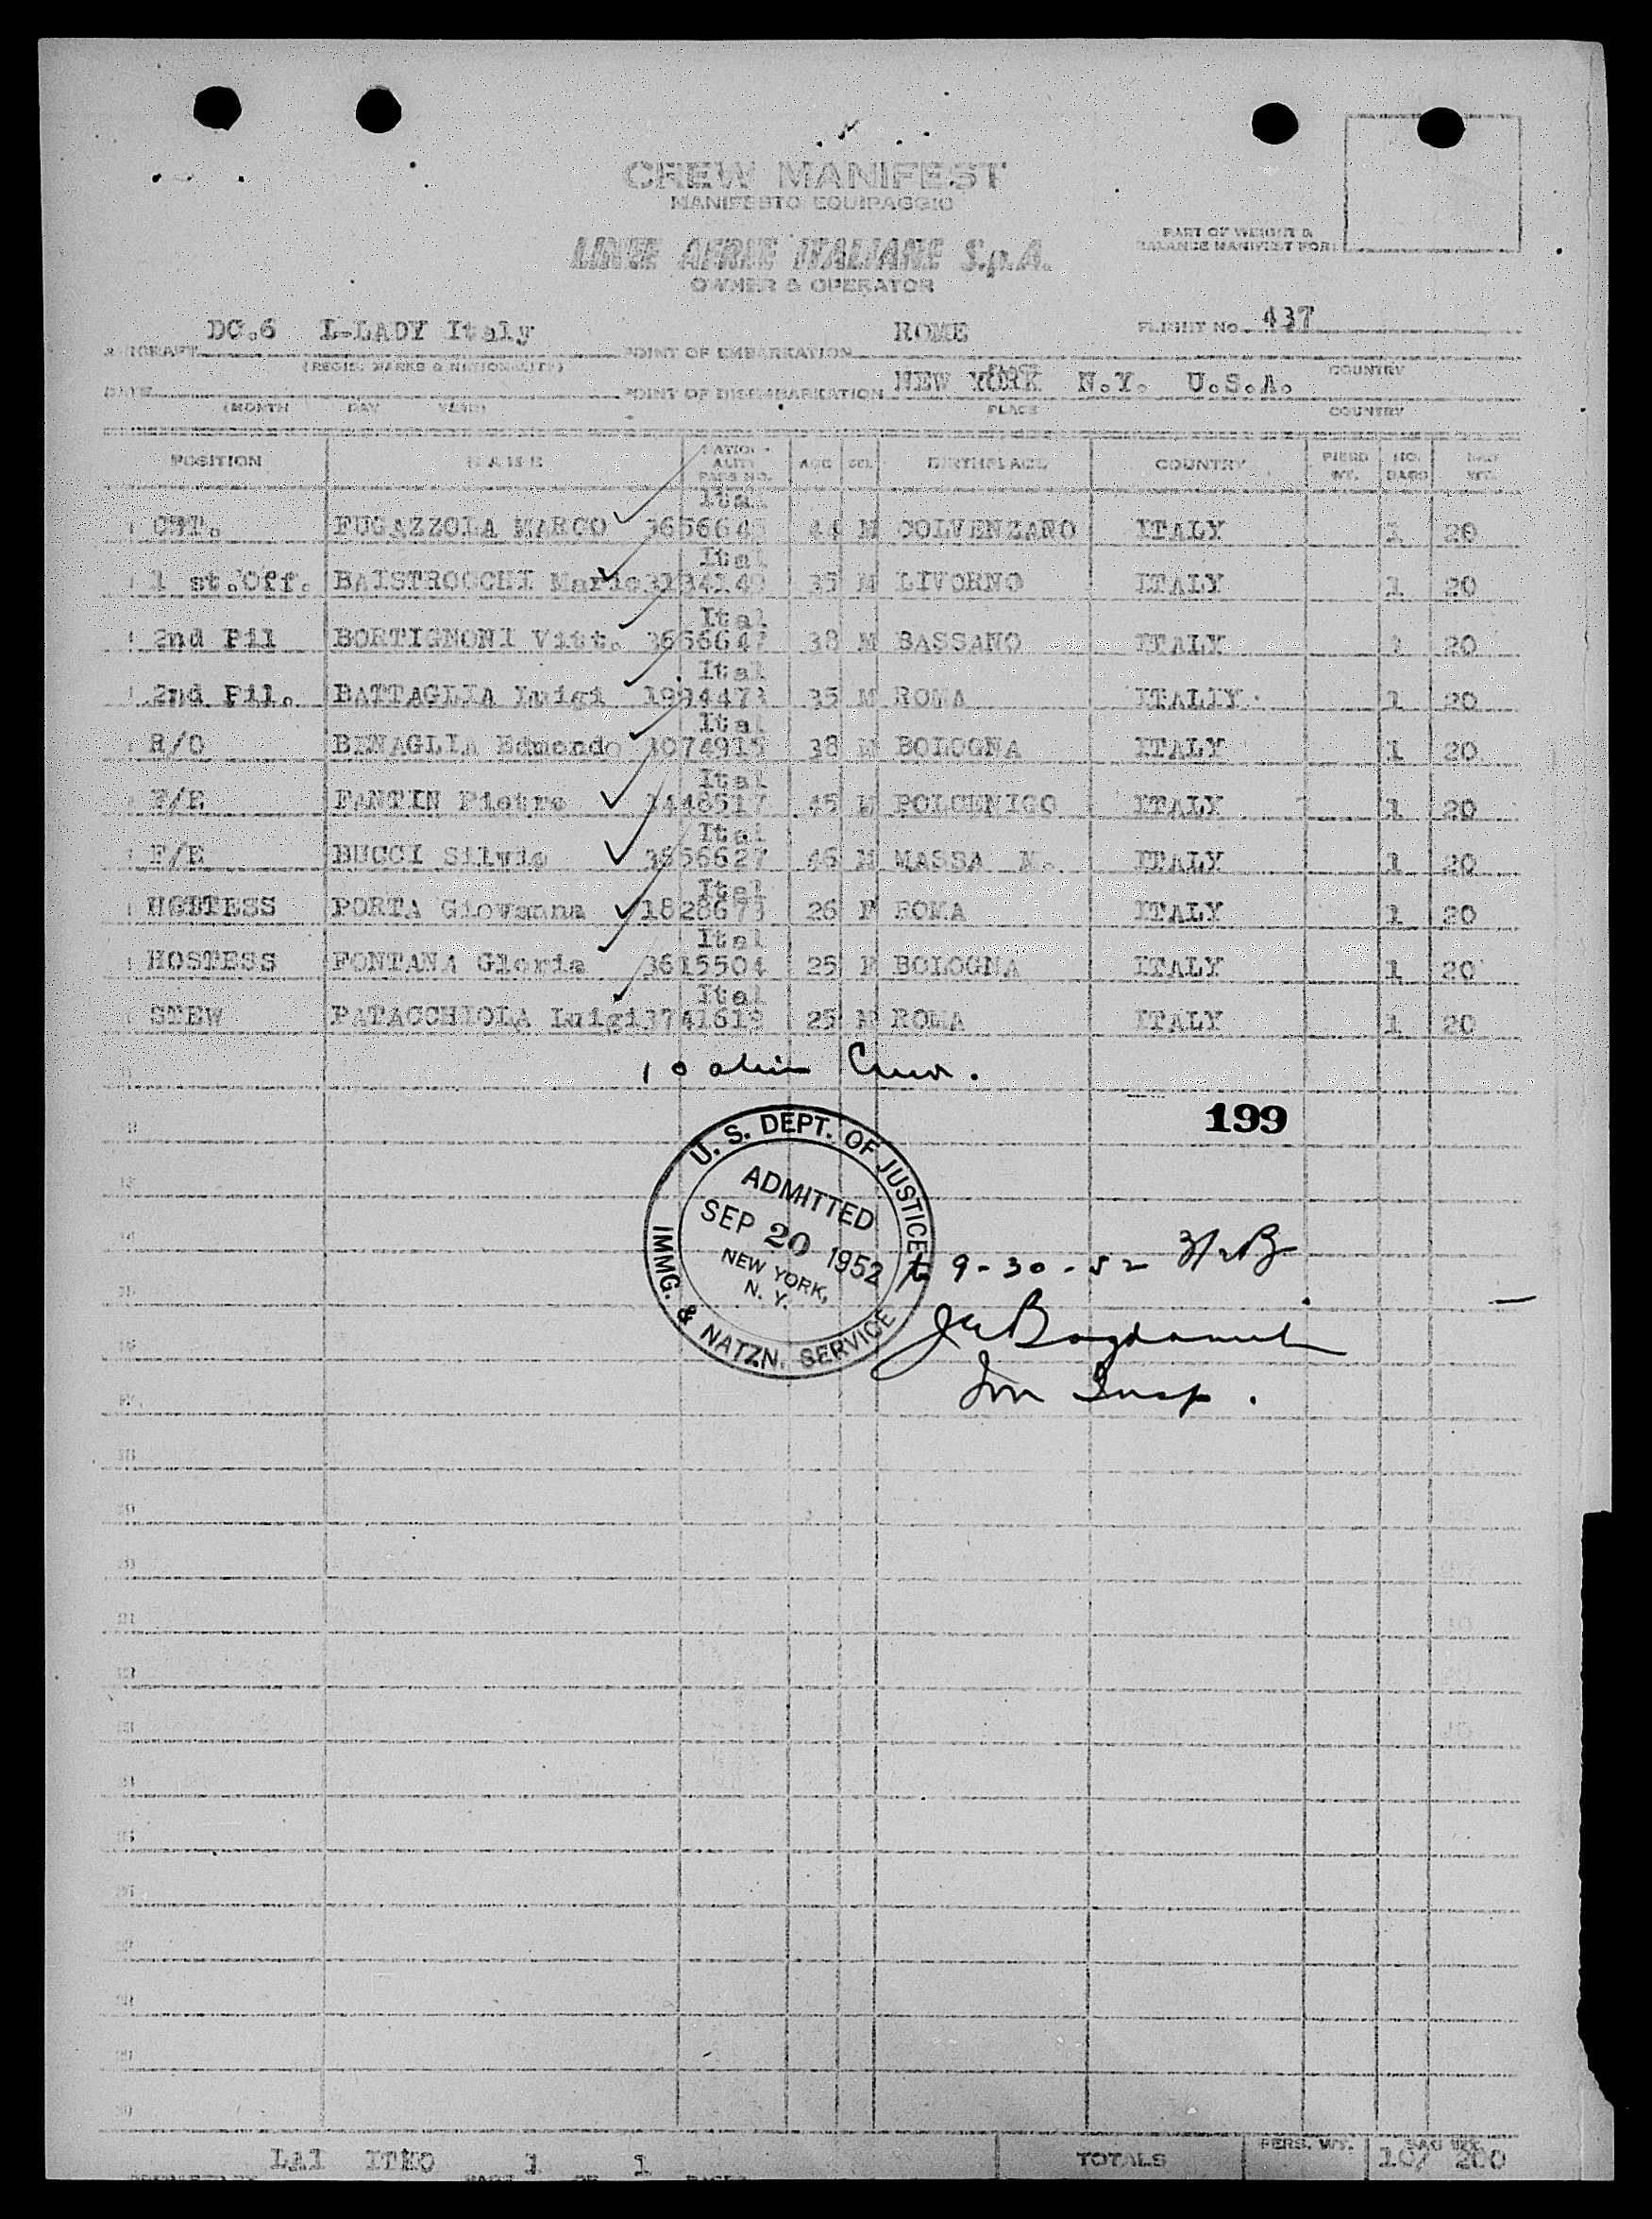 CREW MANIFEST
MANIFESTO EQUIPAGGIO
LINEE AEREE ITALIANE S.p.A.
OWNER & OPERATOR
PART OF WEIGHT &
BALANCE MANIFEST FOR:
AIRCRAFT DC.6 I-LADY Italy POINT OF EMBARKATION ROME FLIGHT No. 437
(REGIS. MARKS & NATIONALITY) PLACE COUNTRY
DATE POINT OF DISEMBARKATION NEW YORK N.Y. U.S.A.
(MONTH DAY YEAR) PLACE COUNTRY
POSITION NAME NATION-ALITY PASS NO. AGE SEX BIRTHPLACE COUNTRY PIERD WT. NO. BAGS BAG WT.
Ital
CPT. FUGAZZOLA MARCO 44 M COLVENZANO ITALY 1 20
Ital
1 st.Off. BAISTROCCHI Mario 3134140 35 M LIVORNO ITALY 1 20
Ital
2nd Pil BORTIGNONI Vitt. 3656647 38 M BASSANO ITALY 1 20
Ital
2nd Pil. BATTAGLIA Luigi 1994473 35 M ROMA ITALIY 1 20
Ital
R/O BENAGLIA Edmondo 1074915 38 M BOLOGNA ITALY 1 20
Ital
F/E FANTIN Pietro 1448517 45 M POLCENIGO ITALY 1 20
Ital
F/E BUCCI Silvio 3656627 46 M MASSA M. ITALY 1 20
Ital
HOSTESS PORTA Giovanna 1828673 26 F ROMA ITALY 1 20
Ital
HOSTESS FONTANA Gloria 3615504 25 F BOLOGNA ITALY 1 20
Ital
STEW PATACCHIOLA Luigi 3741618 25 M ROMA ITALY 1 20
10 alien Crew.
199
U. S. DEPT. OF JUSTICE
ADMITTED
SEP 20 1952
NEW YORK,
N. Y.
IMMG. & NATZN. SERVICE
9-30-52
Im Insp.
LAI 1 1 TOTALS PERS. WT. BAG WT. 10/ 200
PREPARED BY PAGE OF PAGES